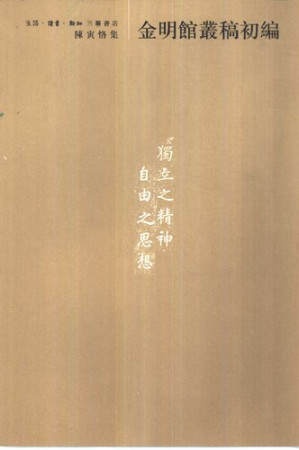 生活·讀書·新知 三聯書店
陳寅恪集
金明館叢稿初編
獨立之精神
自由之思想